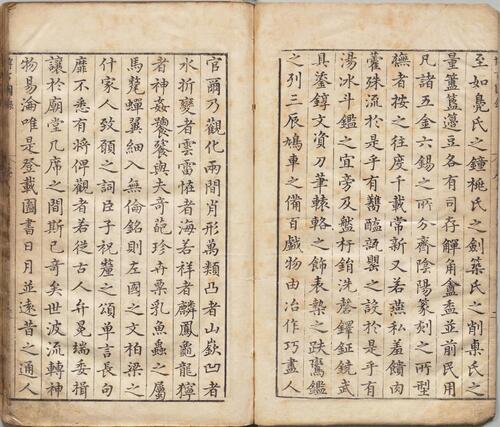 至如鳧氏之鐘桃氏之劍築氏之削㮚氏之
量簠簋籩豆各有司存觶角盦盉並前民用
凡諸五金六錫之所分齊陰陽篆刻之所型
橅者按之往度千載常新又若燕私羞饋肉
藿殊流於是乎有醢瓿罌之設於是乎有
湯冰斗鑑之宜旁及盤杅銷洗磬鐸鉦鐃武
具鋈錞文資刀筆輅之飾表槷之趺鸞鑑
之列三辰鳩車之備百戲物由冶作巧盡人
官爾乃觀化兩間肖形萬類凸者山嶽凹者
水折變者雲雷恠者海若祥者麟鳳龜龍獰
者神姦饕餮與夫奇葩珍卉栗乳魚蟲之屬
馬氂蟬翼細入無倫銘則左國之文柏梁之
什家人致頤之詞臣子祝釐之頌單言長句
靡不悉有將俾觀者若從古人弁冕端委揖
讓於廟堂几席之間斯已奇矣世波流轉神
物易淪唯是登載圖書日月並遠昔之通人